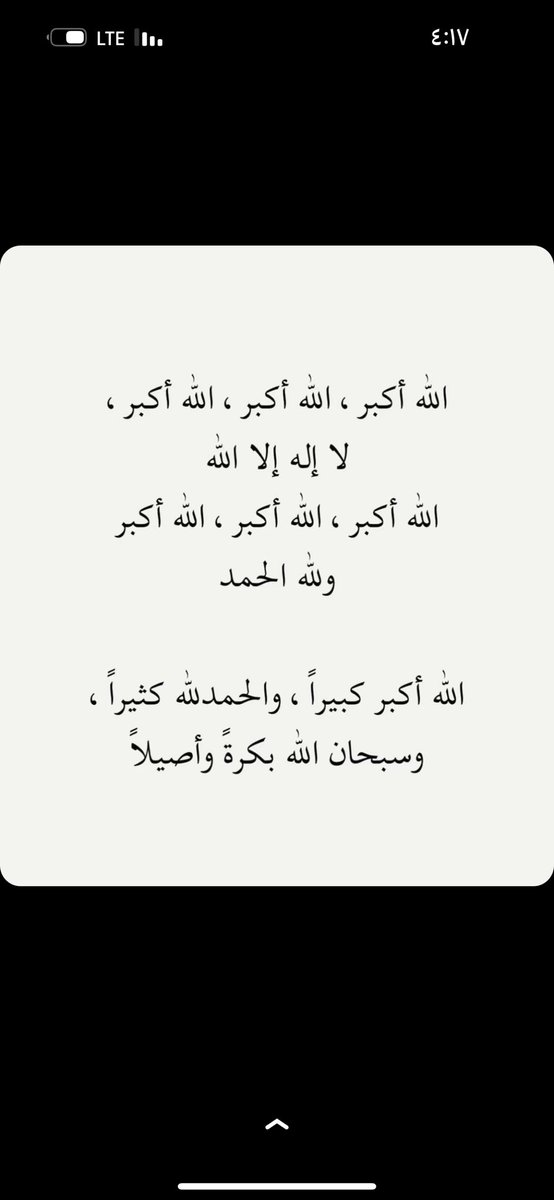 LTE ٤:١٧
الله أكبر ، الله أكبر ، الله أكبر ،
لا إله إلا الله
الله أكبر ، الله أكبر ، الله أكبر
ولله الحمد
الله أكبر كبيراً ، والحمدلله كثيراً ،
وسبحان الله بكرةً وأصيلاً